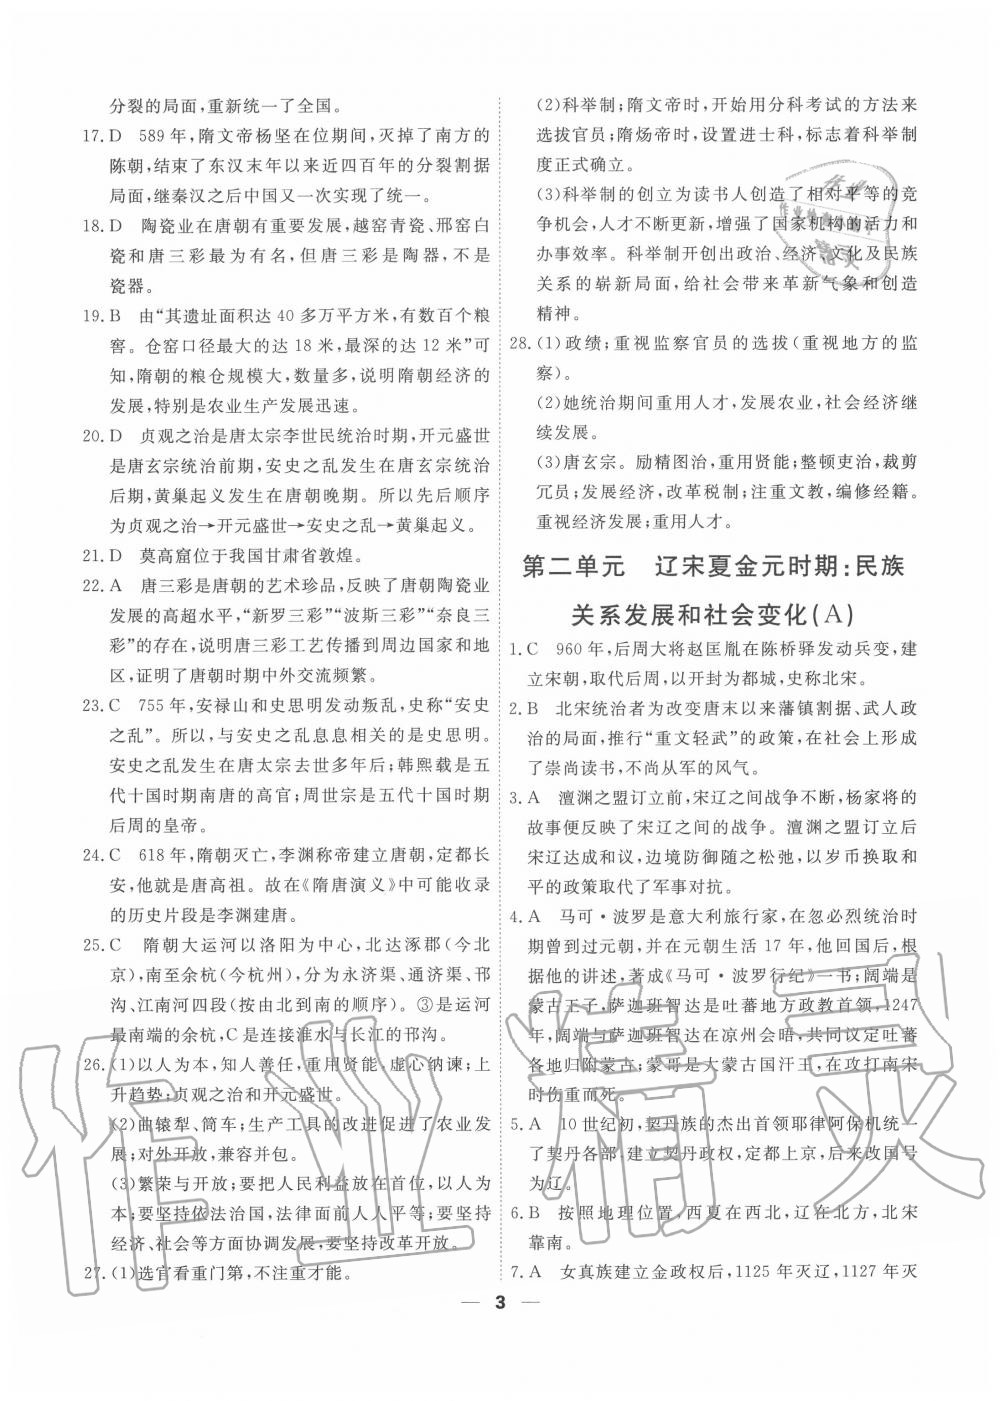 分裂的局面,重新统一了全国。
17. D　589 年,隋文帝杨坚在位期间,灭掉了南方的
陈朝,结束了东汉末年以来近四百年的分裂割据
局面,继秦汉之后中国又一次实现了统一。
18. D　陶瓷业在唐朝有重要发展,越窑青瓷、邢窑白
瓷和唐三彩最为有名,但唐三彩是陶器,不是
瓷器。
19. B　由“其遗址面积达 40 多万平方米,有数百个粮
窖。仓窑口径最大的达 18 米,最深的达 12 米”可
知,隋朝的粮仓规模大,数量多,说明隋朝经济的
发展,特别是农业生产发展迅速。
20. D　贞观之治是唐太宗李世民统治时期,开元盛世
是唐玄宗统治前期,安史之乱发生在唐玄宗统治
后期,黄巢起义发生在唐朝晚期。所以先后顺序
为贞观之治→开元盛世→安史之乱→黄巢起义。
21. D　莫高窟位于我国甘肃省敦煌。
22. A　唐三彩是唐朝的艺术珍品,反映了唐朝陶瓷业
发展的高超水平,“新罗三彩”“波斯三彩”“奈良三
彩”的存在,说明唐三彩工艺传播到周边国家和地
区,证明了唐朝时期中外交流频繁。
23. C　755 年,安禄山和史思明发动叛乱,史称“安史
之乱”。所以,与安史之乱息息相关的是史思明。
安史之乱发生在唐太宗去世多年后;韩熙载是五
代十国时期南唐的高官;周世宗是五代十国时期
后周的皇帝。
24. C　618 年,隋朝灭亡,李渊称帝建立唐朝,定都长
安,他就是唐高祖。故在《隋唐演义》中可能收录
的历史片段是李渊建唐。
25. C　隋朝大运河以洛阳为中心,北达涿郡(今北
京),南至余杭(今杭州),分为永济渠、通济渠、邗
沟、江南河四段(按由北到南的顺序)。③是运河
最南端的余杭,C 是连接淮水与长江的邗沟。
26. (1)以人为本,知人善任,重用贤能,虚心纳谏;上
升趋势;贞观之治和开元盛世。
(2)曲辕犁、筒车;生产工具的改进促进了农业发
展;对外开放,兼容并包。
(3)繁荣与开放;要把人民利益放在首位,以人为
本;要坚持依法治国,法律面前人人平等;要坚持
经济、社会等方面协调发展,要坚持改革开放。
27. (1)选官看重门第,不注重才能。
(2)科举制;隋文帝时,开始用分科考试的方法来
选拔官员;隋炀帝时,设置进士科,标志着科举制
度正式确立。
(3)科举制的创立为读书人创造了相对平等的竞
争机会,人才不断更新,增强了国家机构的活力和
办事效率。科举制开创出政治、经济、文化及民族
关系的崭新局面,给社会带来革新气象和创造
精神。
28. (1)政绩;重视监察官员的选拔(重视地方的监
察)。
(2)她统治期间重用人才,发展农业,社会经济继
续发展。
(3)唐玄宗。励精图治,重用贤能;整顿吏治,裁剪
冗员;发展经济,改革税制;注重文教,编修经籍。
重视经济发展;重用人才。
第二单元　辽宋夏金元时期:民族
关系发展和社会变化(A)
1. C　960 年,后周大将赵匡胤在陈桥驿发动兵变,建
立宋朝,取代后周,以开封为都城,史称北宋。
2. B　北宋统治者为改变唐末以来藩镇割据、武人政
治的局面,推行“重文轻武”的政策,在社会上形成
了崇尚读书,不尚从军的风气。
3. A　澶渊之盟订立前,宋辽之间战争不断,杨家将的
故事便反映了宋辽之间的战争。澶渊之盟订立后
宋辽达成和议,边境防御随之松弛,以岁币换取和
平的政策取代了军事对抗。
4. A　马可·波罗是意大利旅行家,在忽必烈统治时
期曾到过元朝,并在元朝生活 17 年,他回国后,根
据他的讲述,著成《马可·波罗行纪》一书;阔端是
蒙古王子,萨迦班智达是吐蕃地方政教首领,1247
年,阔端与萨迦班智达在凉州会晤,共同议定吐蕃
各地归附蒙古;蒙哥是大蒙古国汗王,在攻打南宋
时伤重而死。
5. A　10 世纪初,契丹族的杰出首领耶律阿保机统一
了契丹各部,建立契丹政权,定都上京,后来改国号
为辽。
6. B　按照地理位置,西夏在西北,辽在北方,北宋
靠南。
7. A　女真族建立金政权后,1125 年灭辽,1127 年灭
— 3 —
作业精灵